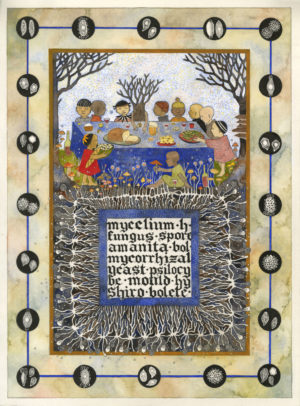 mycelium·h
fungus·spore
amanita·bol
mycorrhizal
yeast·psilocy
be·mould·hy
shiro·bolete·